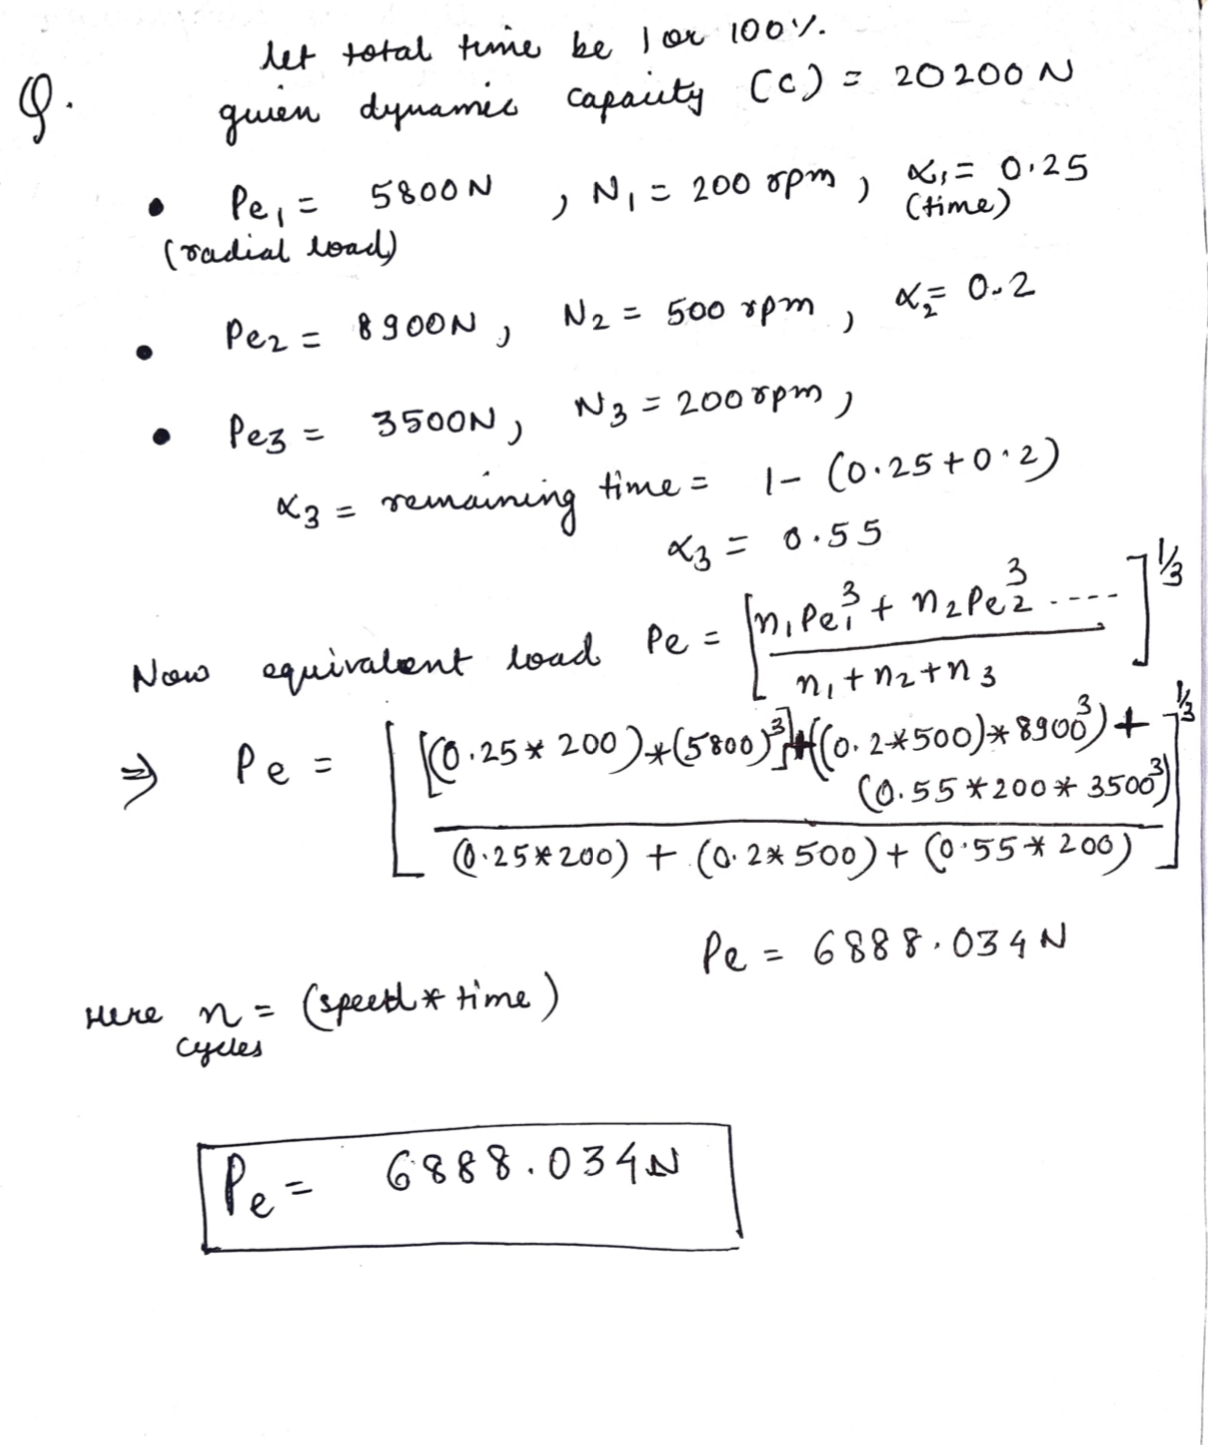 let total time be 1 or 100%.
Q. given dynamic capacity (C) = 20200 N
• Pe₁ = 5800 N , N₁ = 200 rpm , α₁ = 0.25
(radial load) (time)
• Pe₂ = 8900N , N₂ = 500 rpm , α₂ = 0.2
• Pe₃ = 3500N , N₃ = 200 rpm ,
α₃ = remaining time = 1 - (0.25+0.2)
α₃ = 0.55
Now equivalent load Pe = [n₁Pe₁³ + n₂Pe₂³ ..... / n₁+n₂+n₃]^1/3
⇒ Pe = [[(0.25*200)*(5800)³]+((0.2*500)*8900³) +
(0.55*200*3500³) / (0.25*200) + (0.2*500) + (0.55*200)]^1/3
Pe = 6888.034 N
Here n = (speed * time)
cycles
Pe = 6888.034N